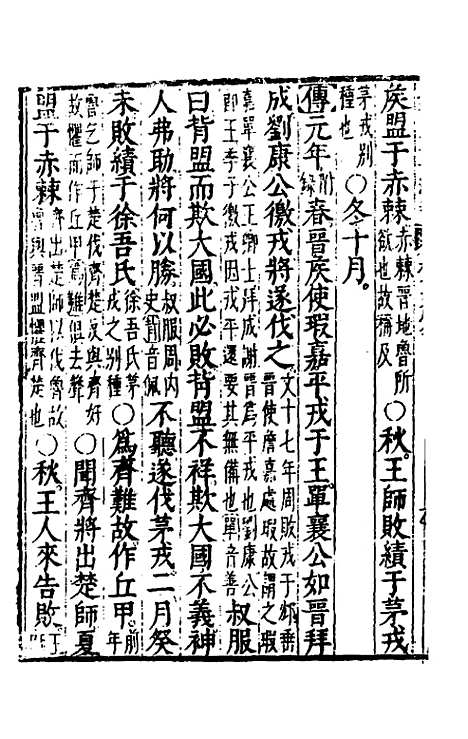 矦盟于赤棘赤棘晉地魯所欲也故稱及○秋王師敗績于茅戎
茅戎別種也○冬十月。
傳元年附錄春晉矦使瑕嘉平戎于王單襄公如晉拜
成劉康公徼戎將遂伐之文十七年周敗戎于邥垂晉使詹嘉處瑕故謂之瑕嘉單襄公王卿士拜成謝晉爲平戎也劉康公即王季子徼戎因戎平還要其無備也單音善叔服
曰背盟而欺大國此必敗背盟不祥欺大國不義神
人弗助將何以勝叔服周內史背音佩不聽遂伐茅戎二月癸
未敗績于徐吾氏徐吾氏茅戎之別種○爲齊難故作丘甲前年
魯乞師于楚伐齊楚師不出故懼而作丘甲爲難俱去聲○聞齊將出楚師夏
盟于赤棘齊出楚師以伐魯故魯與晉盟懼齊楚也○秋王人來告敗